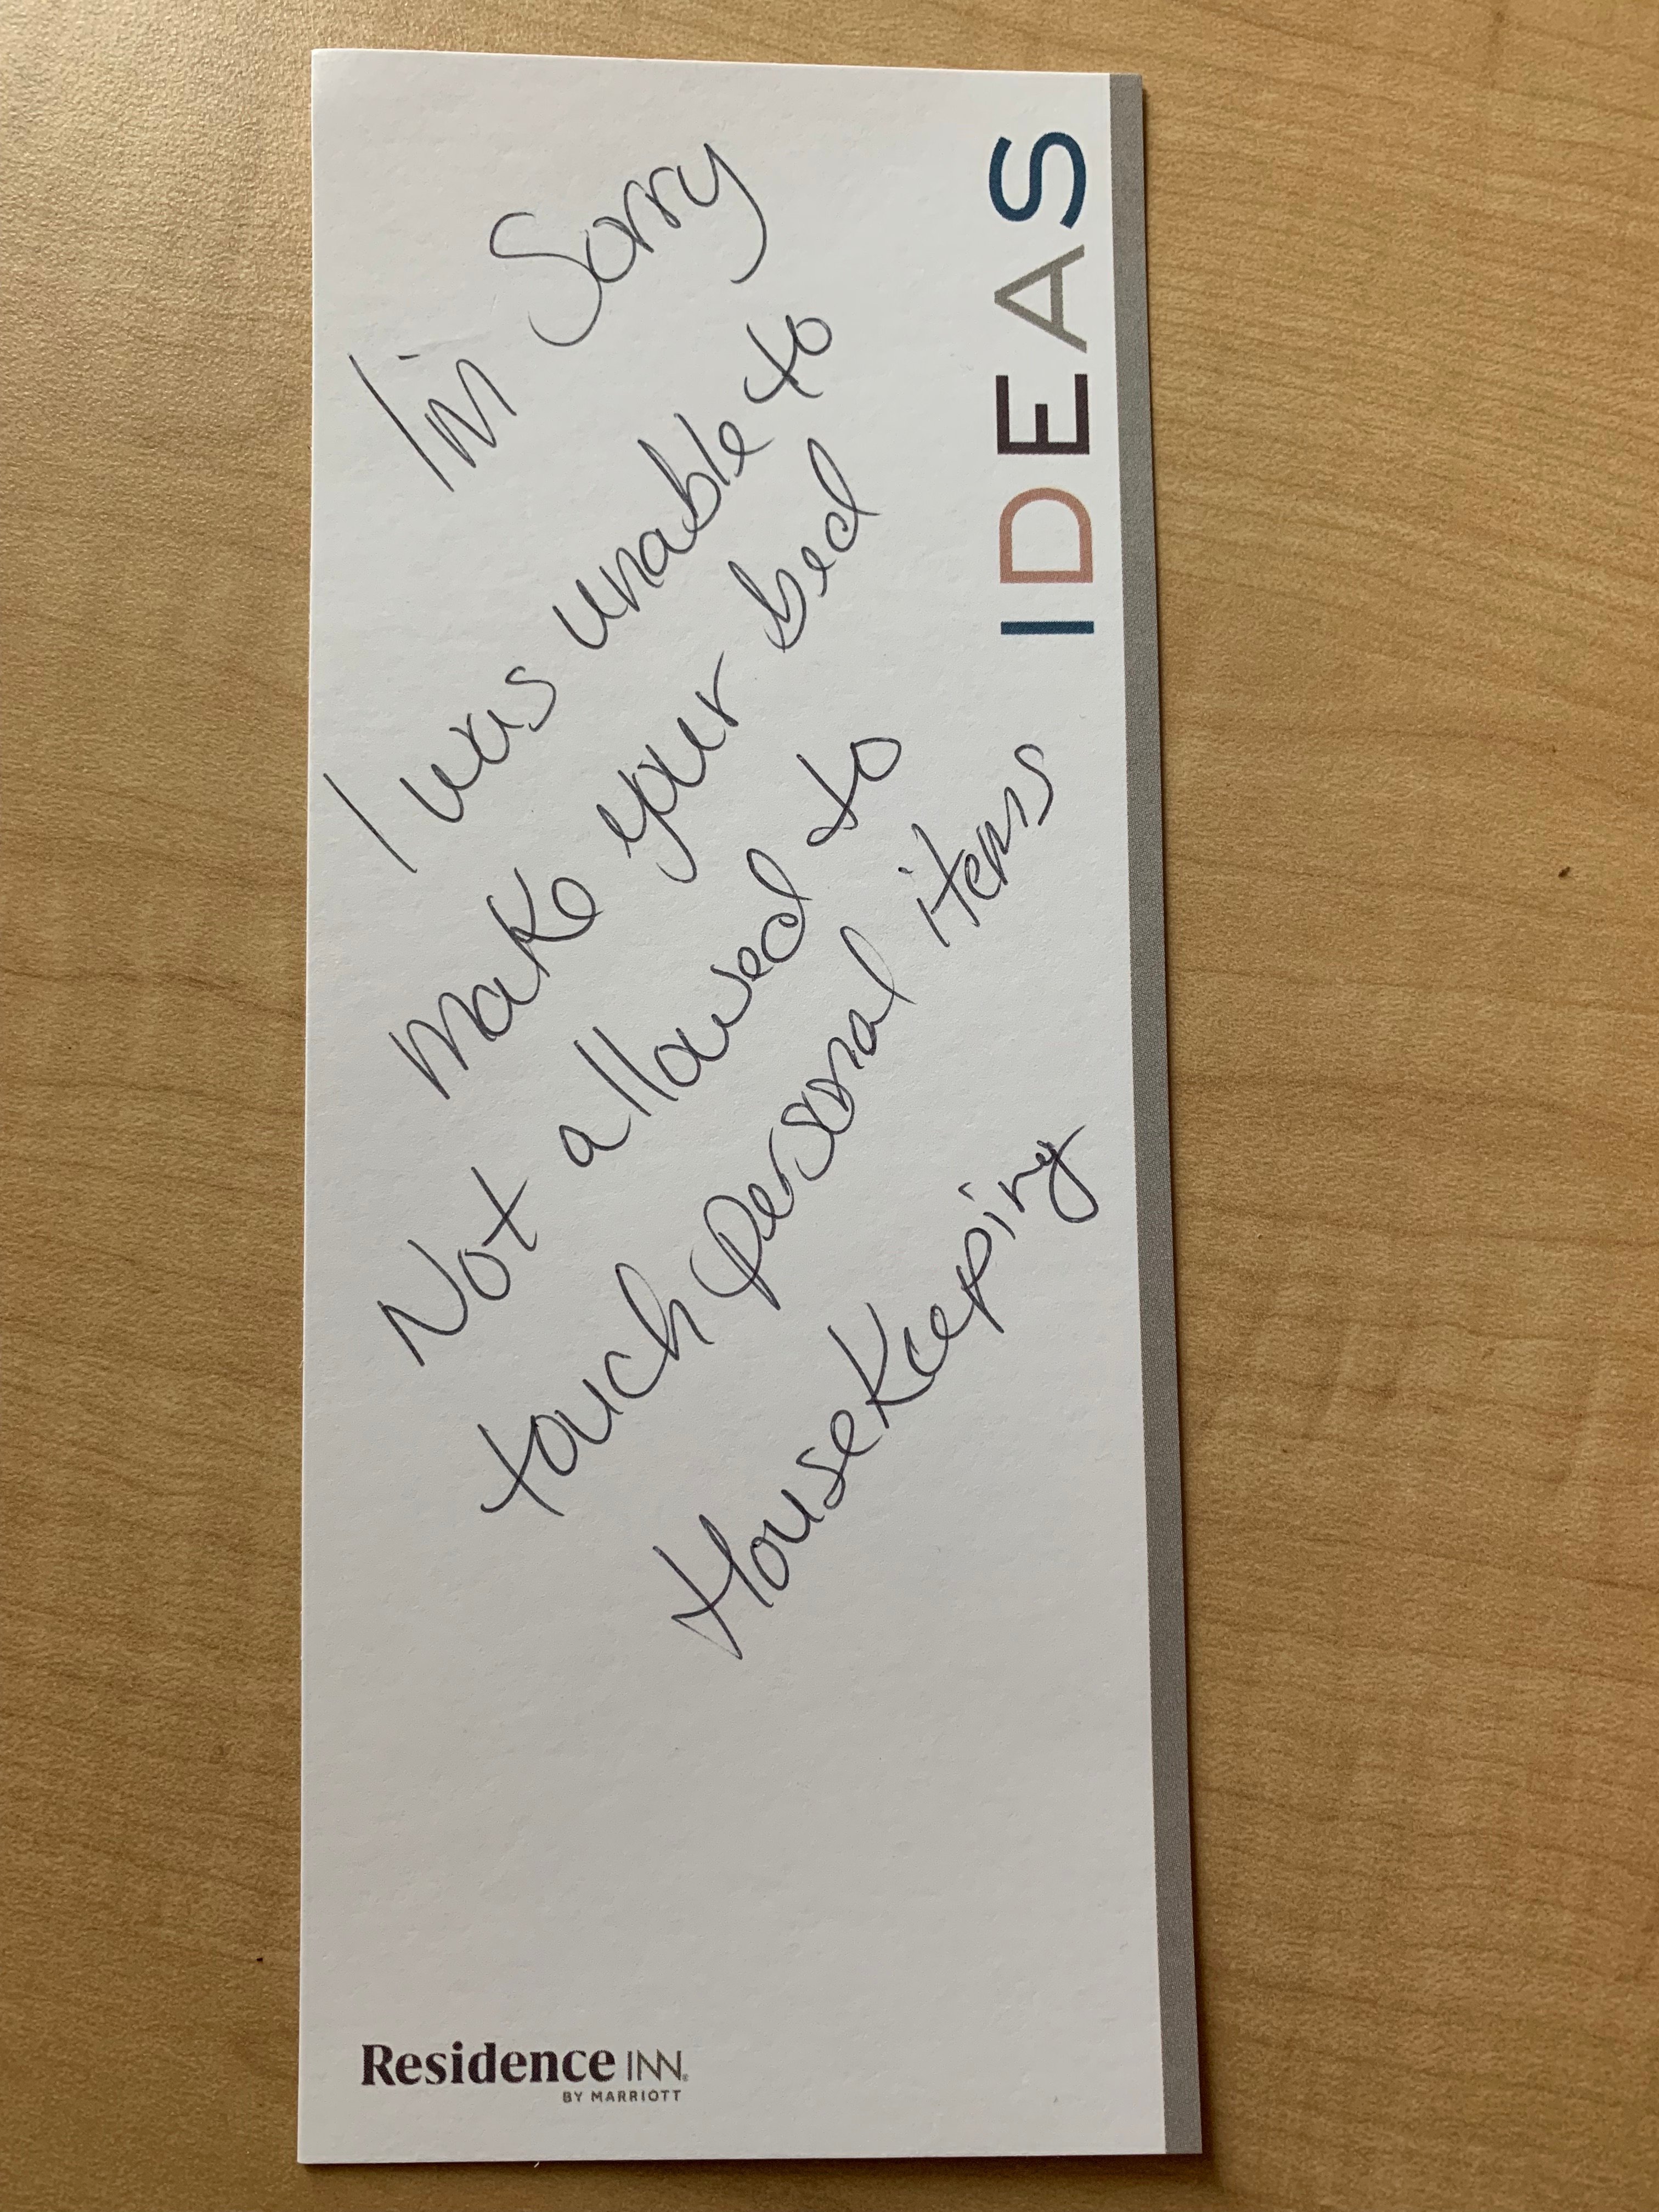 I'm Sorry
I was unable to
make your bed
Not allowed to
touch personal items
HouseKeeping
IDEAS
Residence INN®
BY MARRIOTT